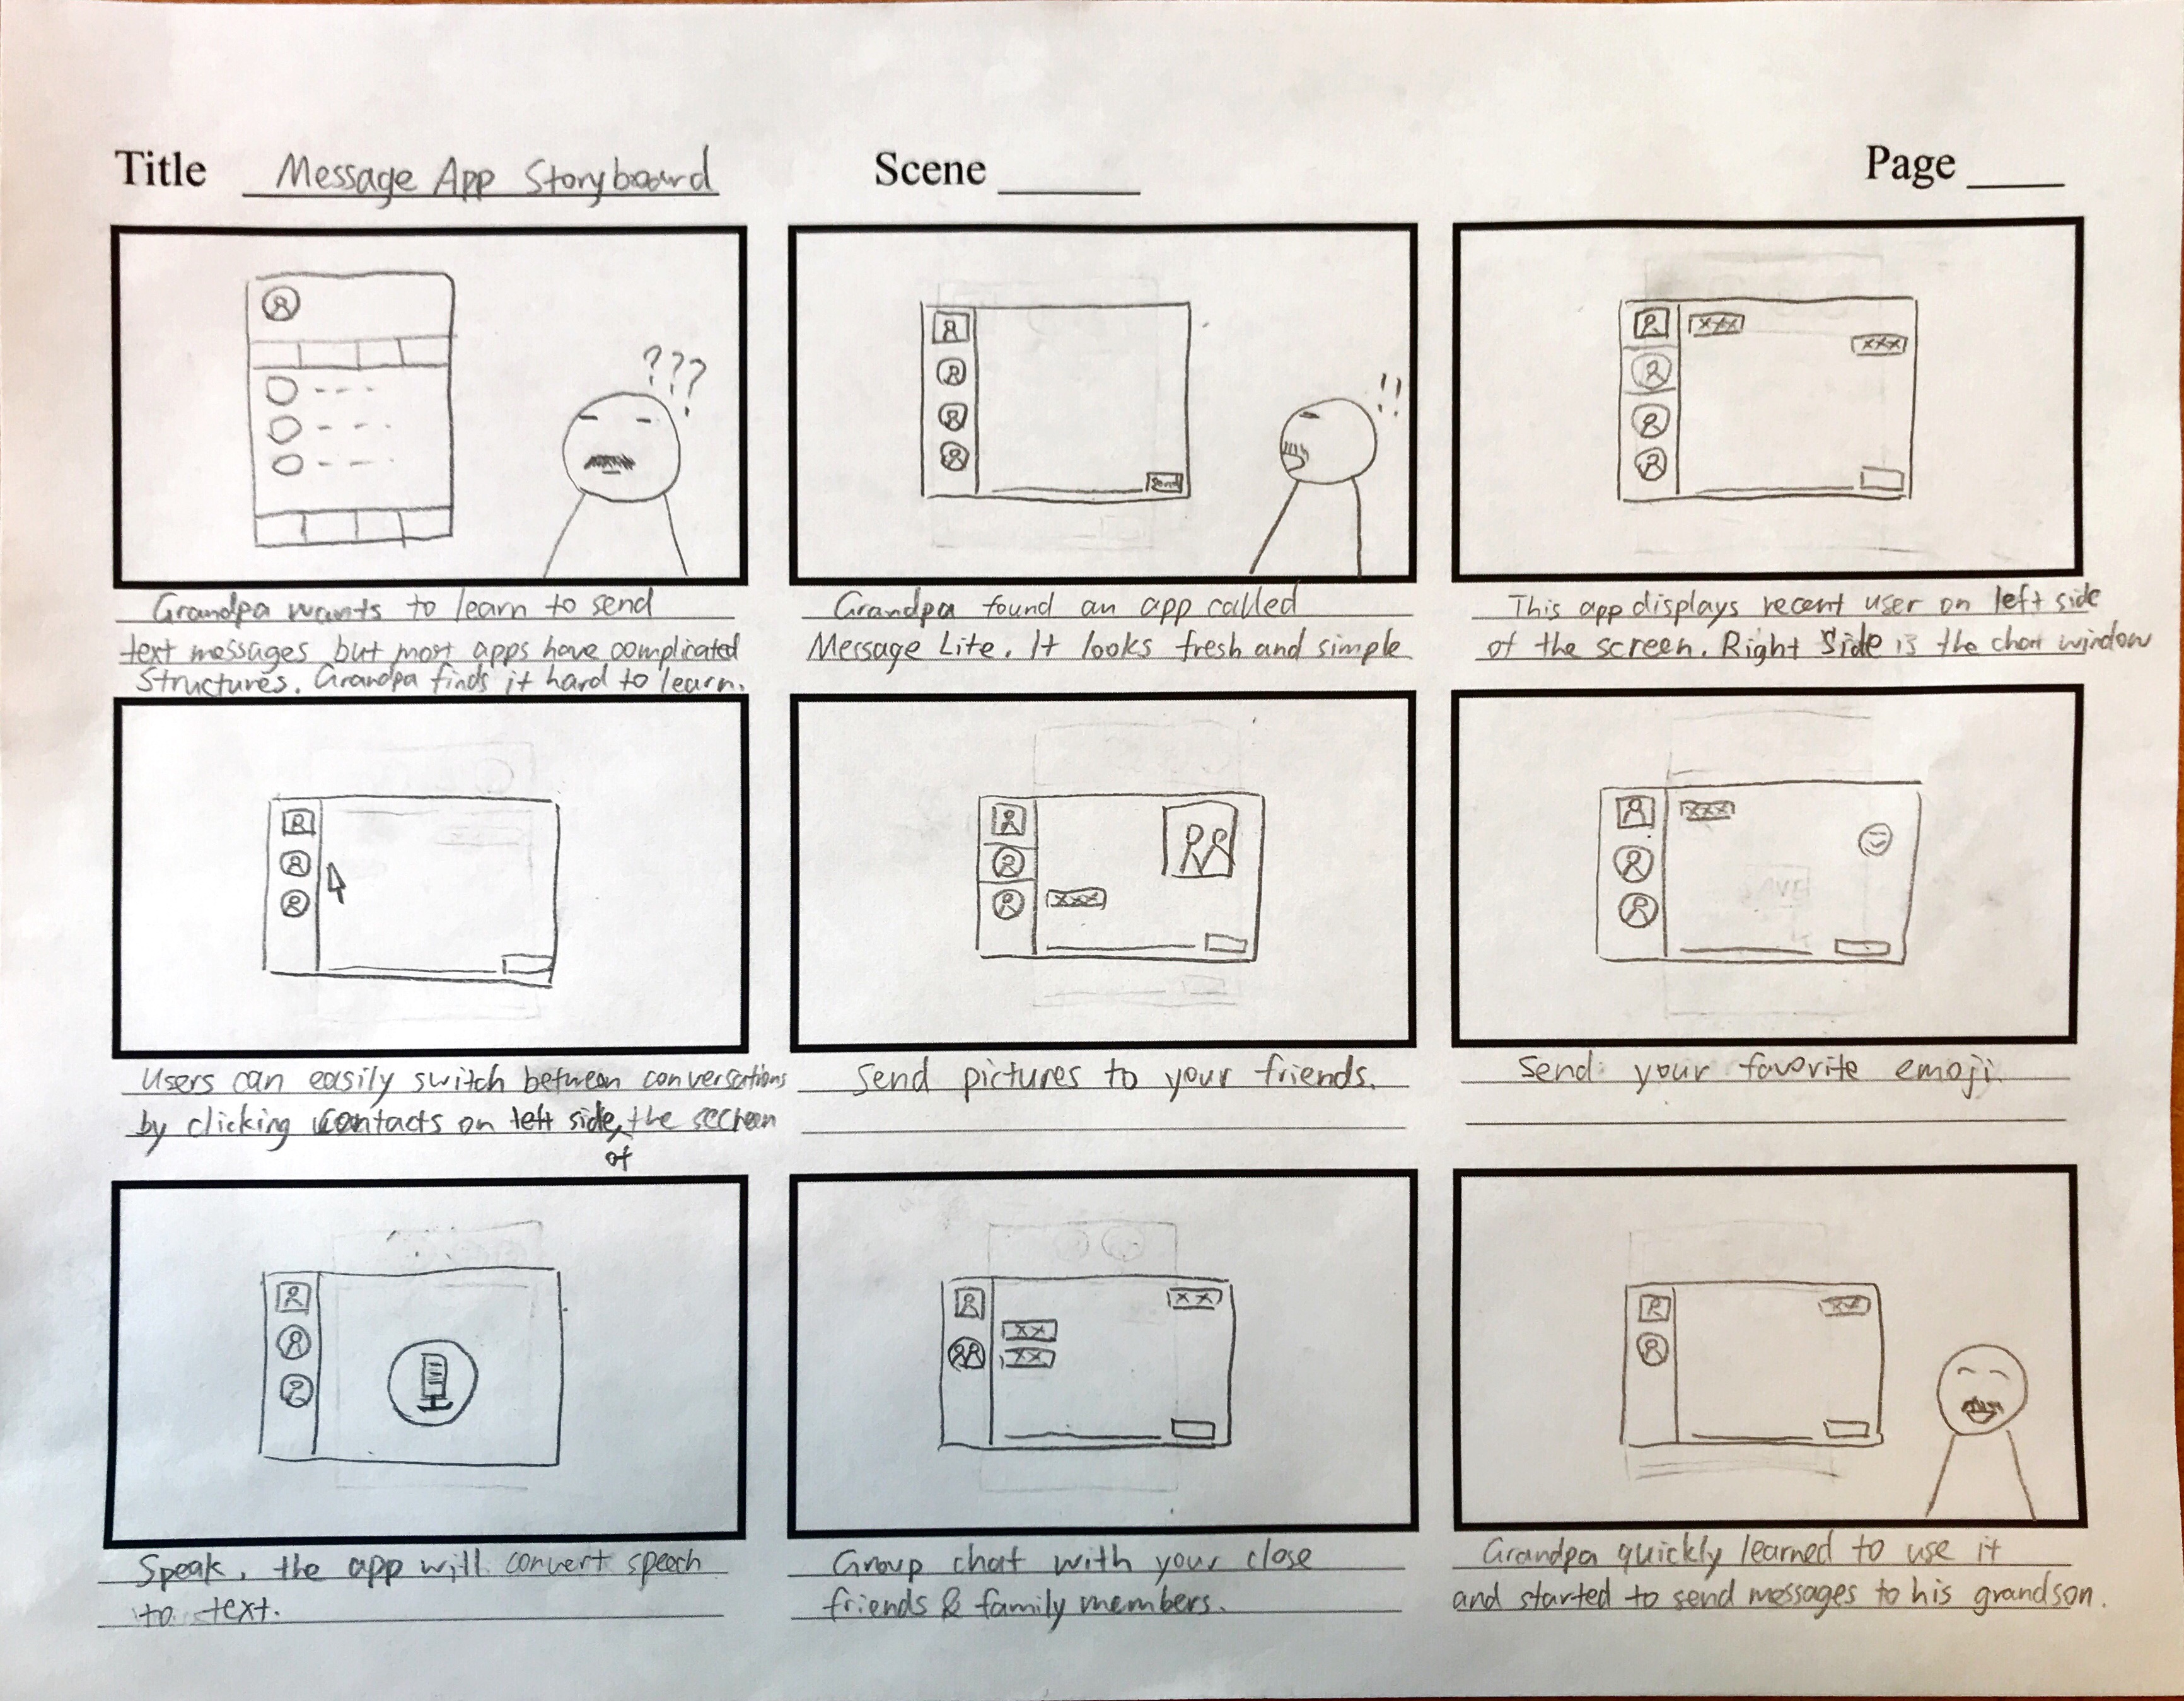 Title Message App Storyboard Scene Page
???
!!
Send
xxx
xxx
Grandpa wants to learn to send
text messages but most apps have complicated
structures. Grandpa finds it hard to learn.
Grandpa found an app called
Message Lite. It looks fresh and simple
This app displays recent user on left side
of the screen. Right side is the chat window
xxx
xxx
Users can easily switch between conversations
by clicking contacts on left side of the secreen
Send pictures to your friends.
Send your favorite emoji.
xx
xx
xx
xx
Speak, the app will convert speech
to text.
Group chat with your close
friends & family members.
Grandpa quickly learned to use it
and started to send messages to his grandson.